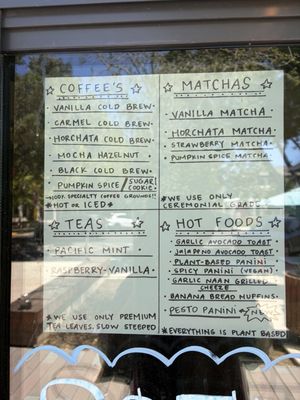 COFFEE'S
VANILLA COLD BREW
CARMEL COLD BREW
HORCHATA COLD BREW
MOCHA HAZELNUT
BLACK COLD BREW
PUMPKIN SPICE / SUGAR COOKIE
100% SPECIALTY COFFEE GROUNDS!
*HOT OR ICED*
MATCHAS
VANILLA MATCHA
HORCHATA MATCHA
STRAWBERRY MATCHA
PUMPKIN SPICE MATCHA
*WE USE ONLY
CEREMONIAL GRADE
TEAS
PACIFIC MINT
RASPBERRY-VANILLA
*WE USE ONLY PREMIUM
TEA LEAVES. SLOW STEEPED
HOT FOODS
GARLIC AVOCADO TOAST
JALAPENO AVOCADO TOAST
PLANT-BASED PANINI
SPICY PANINI (VEGAN)
GARLIC NAAN GRILLED
CHEESE
BANANA BREAD MUFFINS
PESTO PANINI
*EVERYTHING IS PLANT BASED